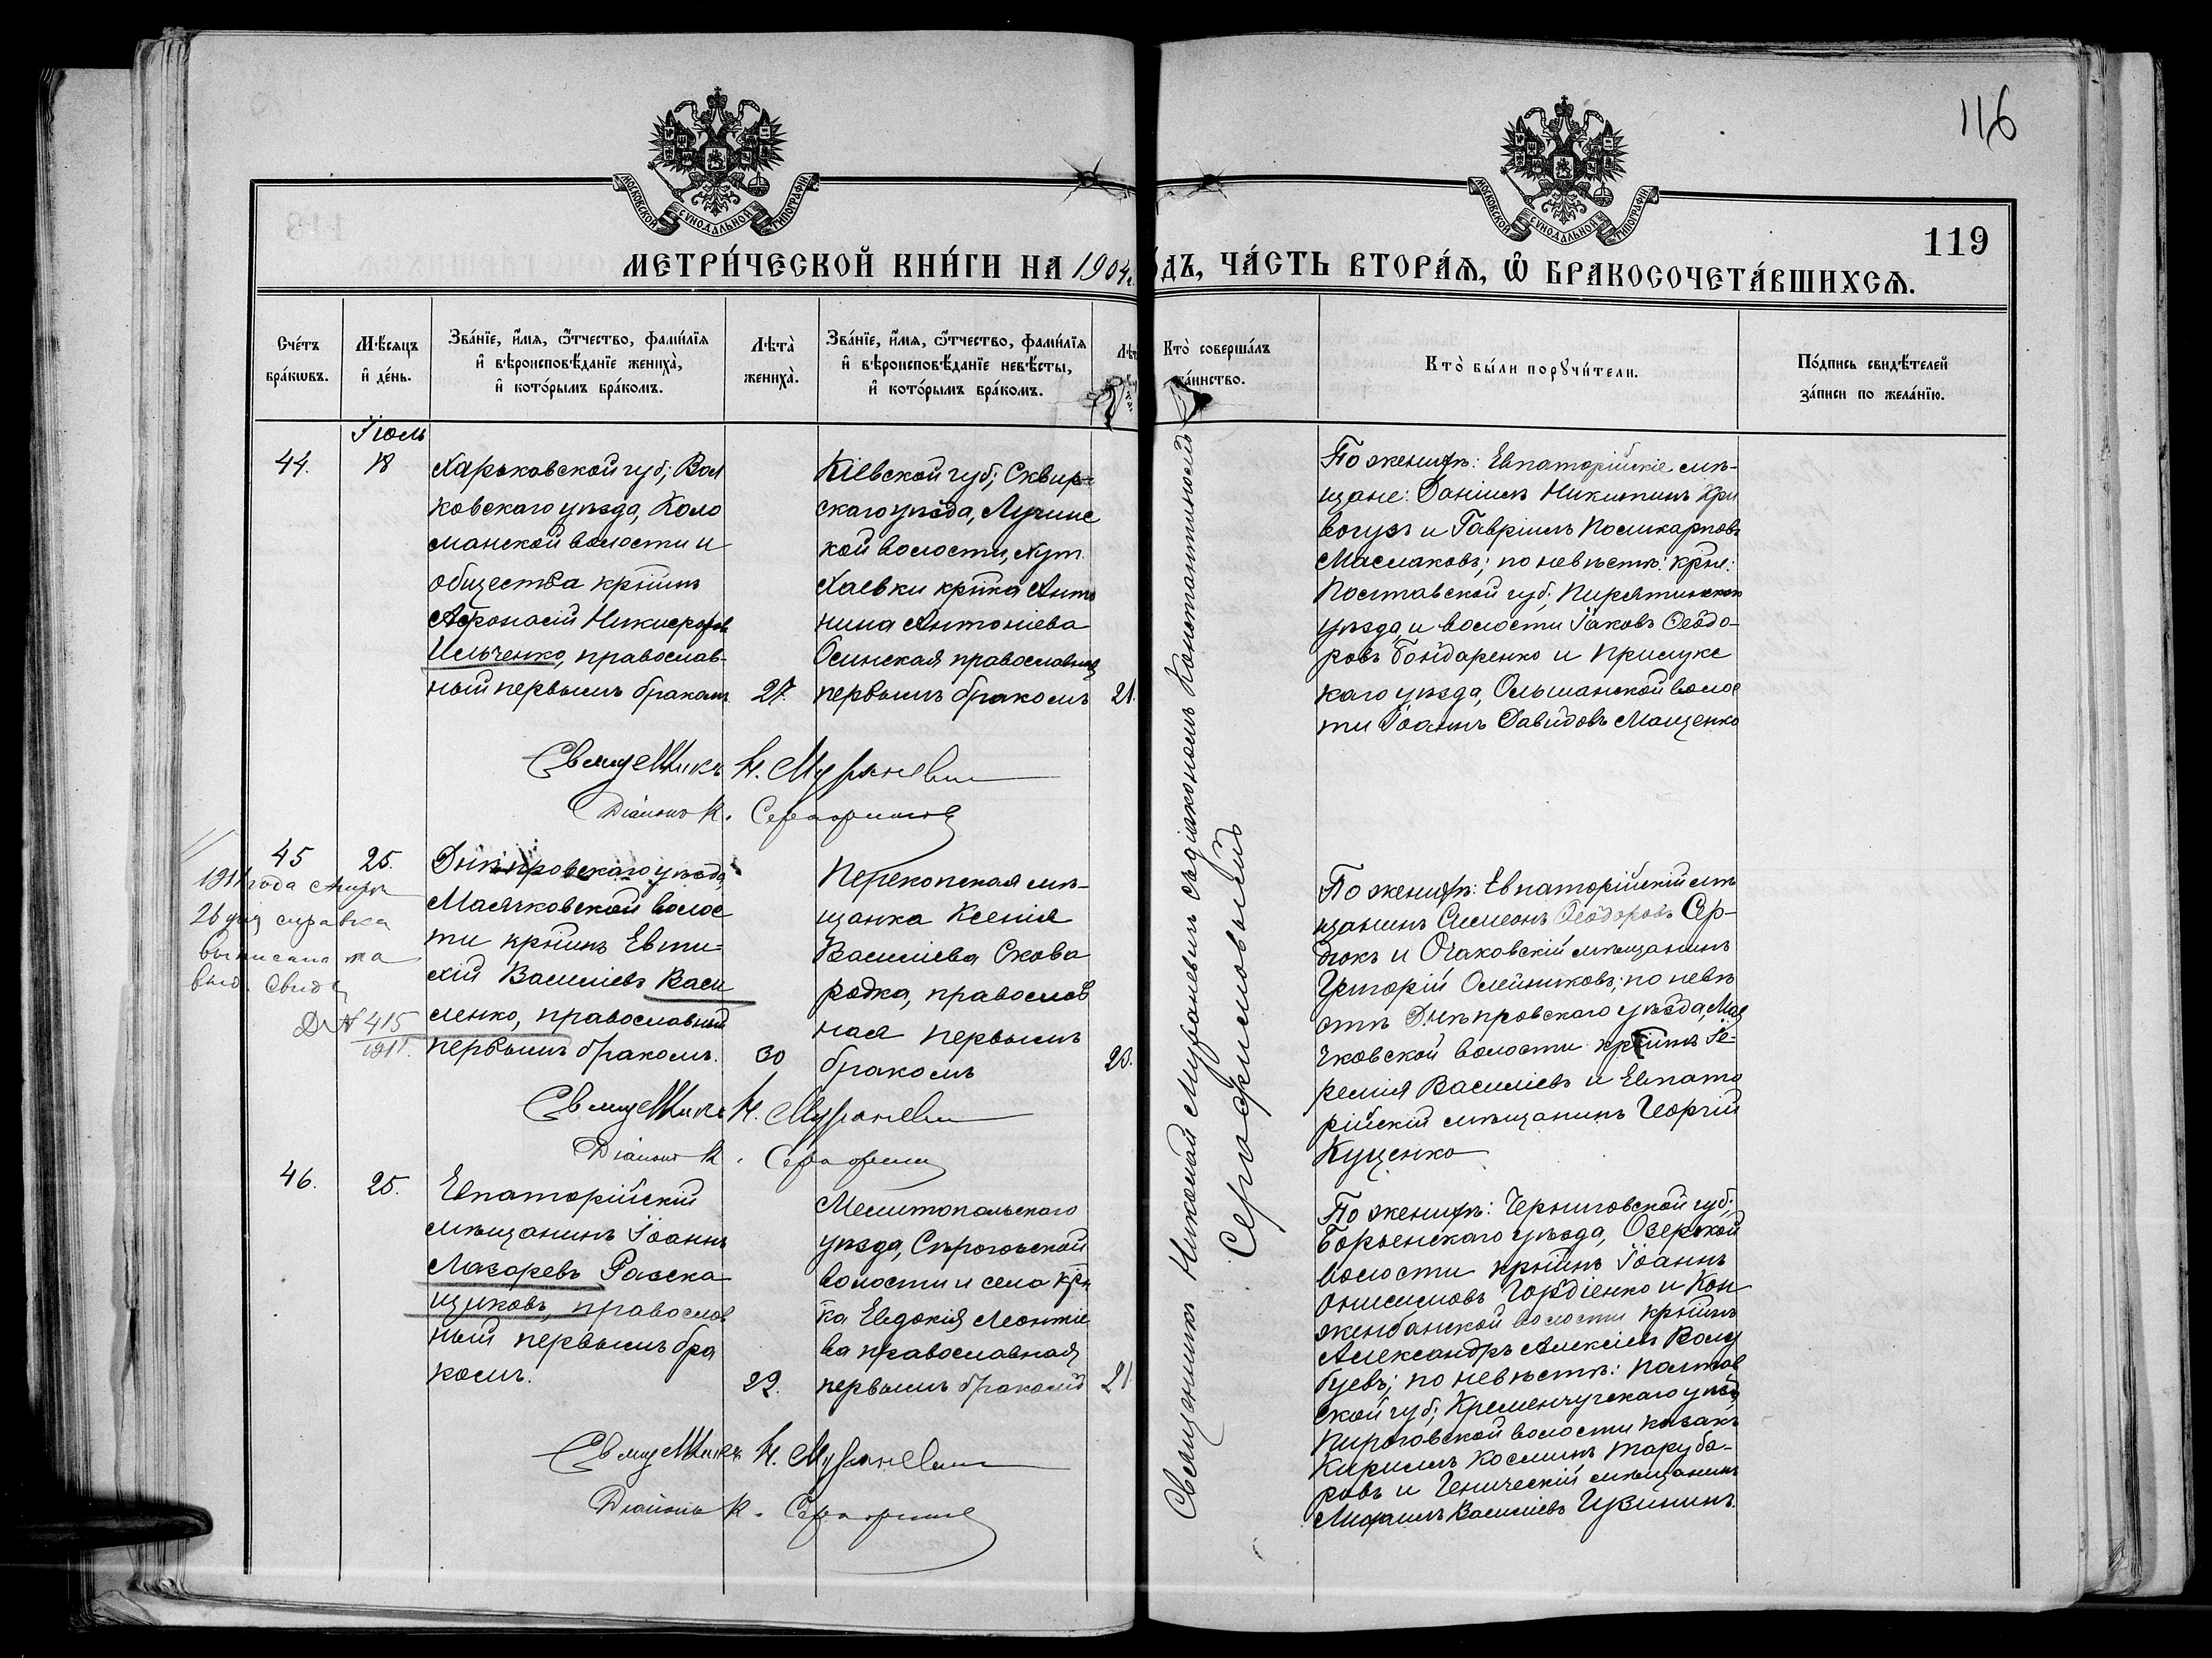 116
119
МОСКОВСКОЙ СѴНОДАЛЬНОЙ ТИПОГРАФІИ
МОСКОВСКОЙ СѴНОДАЛЬНОЙ ТИПОГРАФІИ
МЕТРИ́ЧЕСКОЙ КНИ́ГИ НА 1904 г.
ДЪ, ЧА́СТЬ ВТОРА́Ѧ, Ѡ҆ БРАКОСОЧЕТА́ВШИХСѦ.
Сче́тъ
бра́кѡвъ.
Мѣ́сяцъ
и҆ де́нь.
Зва́нїе, и҆́мя, ѻ҆́тчество, фами́лїя
и҆ вѣроисповѣ́данїе жениха̀,
и҆ кото́рымъ бра́комъ.
Лѣта̀
жениха̀.
Зва́нїе, и҆́мя, ѻ҆́тчество, фами́лїя
и҆ вѣроисповѣ́данїе невѣ́сты,
и҆ кото́рымъ бра́комъ.
Кто̀ соверша́лъ
та́инство.
Кто̀ бы́ли порꙋчи́тели.
По́дпись свидѣ́телей
за́писи по жела́нїю.
Іюль
44.
18
Харьковской губ; Вал
ковскаго уѣзда, Коло
манской волости и
общества кр̄нинъ
Афонасій Никифоров
Ильченко, православ-
ный первымъ бракомъ
27.
Кіевской губ; Сквир-
скаго уѣзда, Лучинс
кой волости, хут.
Хаевки кр̄нка Анто
нина Антоніева
Осинская православная
первымъ бракомъ
21.
По женихѣ: Евпаторійскіе мѣ-
щане: Даніилъ Никитинъ Кри
вогузъ и Гавріилъ Поликарповъ
Маслаковъ; по невѣстѣ: крне:
Полтавской губ; Пирятинскаго
уѣзда и волости Іаковъ Ѳеодо-
ровъ Бондаренко и Прилукс
каго уѣзда, Ольшанской волос
ти Іоаннъ Давидовъ Мащенко
Священникъ Н. Мураневич
Діаконъ К. Серафимовъ
45
25.
1911 года
26 дня справка
выписана на
выд. свид.
№ 415
1911.
Днѣпровскаго уѣзда,
Маячковской волос
ти кр̄нинъ Евти-
хій Василіевъ Васи
ленко, православный
первымъ бракомъ.
30
Перекопская мѣ-
щанка Ксенія
Василіева Сково
родка, православ
ная первымъ
бракомъ
23.
По женихѣ: Евпаторійскій мѣ
щанинъ Симеонъ Ѳеодоровъ Сер-
дюкъ и Очаковскій мѣщанинъ
Григорій Олейниковъ; по невѣ
стѣ Днѣпровскаго уѣзда, Мая
чковской волости кр̄нинъ Іе-
ремія Василіевъ и Евпато
рійскій мѣщанинъ Георгій
Куценко
Священникъ Н. Мураневич
Діаконъ К. Серафимов
46.
25.
Евпаторійскій
мѣщанинъ Іоаннъ
Лазаревъ Разска
щиковъ, православ
ный первымъ бра
комъ.
22.
Мелитопольскаго
уѣзда, Сѣрогозской
волости и села кр̄н
ка Евдокія Леонтіе
ва православная
первымъ бракомъ
21.
По женихѣ: Черниговской губ;
Борзенскаго уѣзда, Озерской
волости кр̄нинъ Іоаннъ
Онисимовъ Гордіенко и
волости кр̄нинъ
Александръ Алексіевъ
буевъ; по невѣстѣ: Полтав
ской губ; Кременчугскаго уѣзд
Пироговской волости казакъ
Кириллъ Космичъ Таруба-
ровъ и Геническій мѣщанинъ
Михаилъ Василіевъ
Священникъ Н. Мураневич
Діаконъ К. Серафимов
Священникъ Николай Мураневичъ съ діакономъ Константиномъ
Серафимовымъ